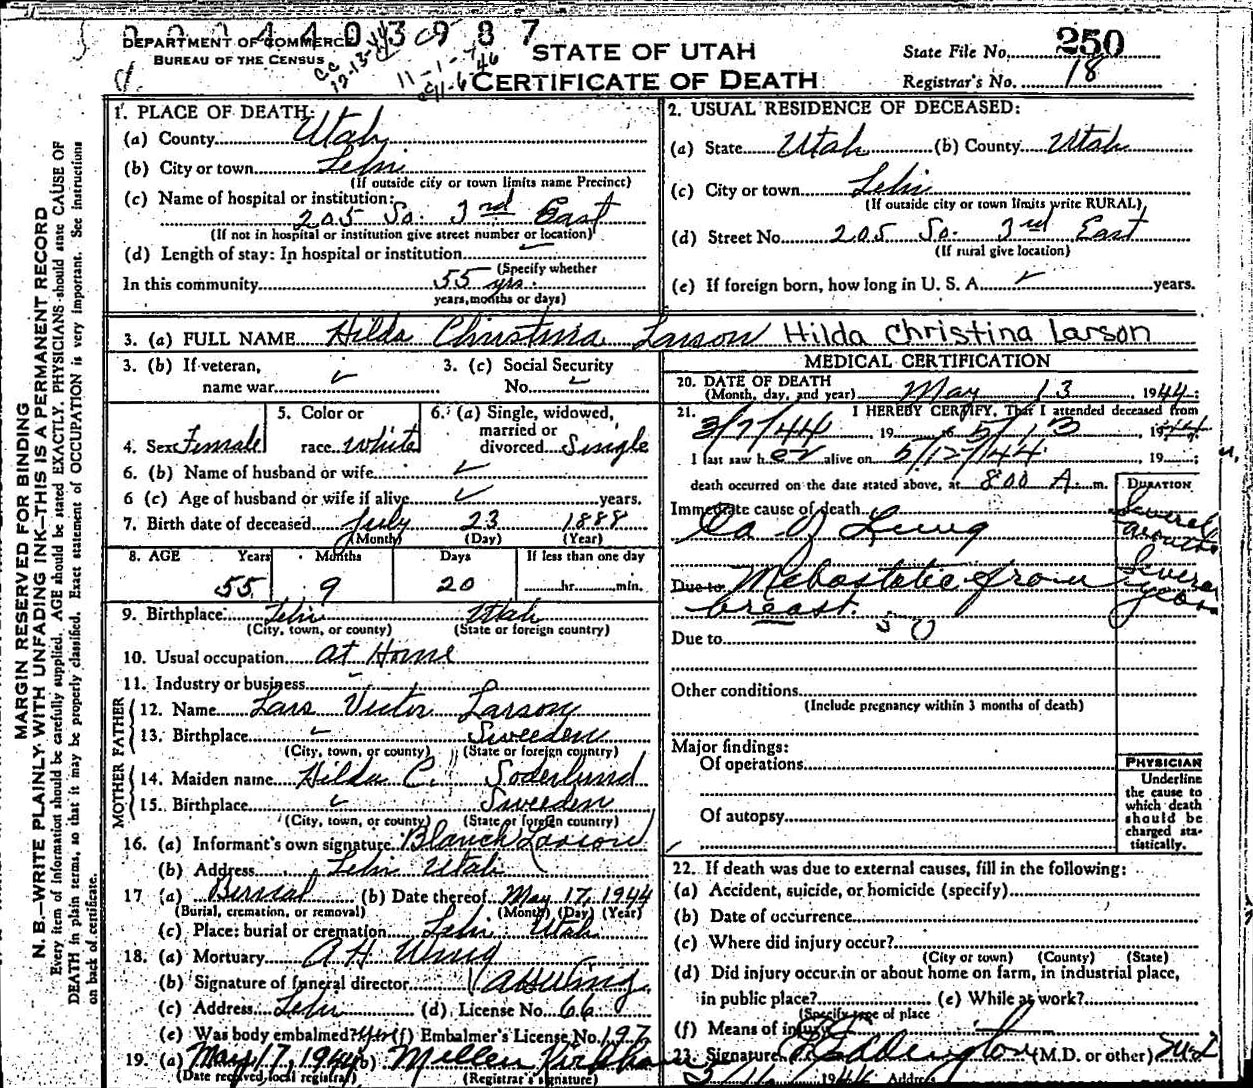 DEPARTMENT OF COMMERCE
BUREAU OF THE CENSUS
STATE OF UTAH
CERTIFICATE OF DEATH
State File No. 250
Registrar's No. 18
1. PLACE OF DEATH:
(a) County Utah
(b) City or town Lehi
(If outside city or town limits name Precinct)
(c) Name of hospital or institution:
205 So. 3rd East
(If not in hospital or institution give street number or location)
(d) Length of stay: In hospital or institution
(Specify whether
In this community 55 yrs.
years, months or days)
2. USUAL RESIDENCE OF DECEASED:
(a) State Utah (b) County Utah
(c) City or town Lehi
(If outside city or town limits write RURAL)
(d) Street No. 205 So. 3rd East
(If rural give location)
(e) If foreign born, how long in U. S. A. years.
3. (a) FULL NAME Hilda Christina Larson Hilda Christina Larson
3. (b) If veteran, name war
3. (c) Social Security No.
4. Sex Female
5. Color or race White
6. (a) Single, widowed, married or divorced Single
6. (b) Name of husband or wife
6 (c) Age of husband or wife if alive years.
7. Birth date of deceased July 23 1888
(Month) (Day) (Year)
8. AGE Years Months Days If less than one day
55 9 20 hr. min.
9. Birthplace Lehi Utah
(City, town, or county) (State or foreign country)
10. Usual occupation at Home
11. Industry or business
FATHER
12. Name Lars Victor Larson
13. Birthplace Sweeden
(City, town, or county) (State or foreign country)
MOTHER
14. Maiden name Hilda C. Soderlund
15. Birthplace Sweeden
(City, town, or county) (State or foreign country)
16. (a) Informant's own signature Blanch Larson
(b) Address Lehi Utah
17 (a) Burial (b) Date thereof May 17, 1944
(Burial, cremation, or removal) (Month) (Day) (Year)
(c) Place: burial or cremation Lehi Utah
18. (a) Mortuary A H Wing
(b) Signature of funeral director
(c) Address Lehi (d) License No. 66
(e) Was body embalmed? yes (f) Embalmer's License No. 197
19. (a) May 17, 1944 (b)
(Date received local registrar) (Registrar's signature)
MEDICAL CERTIFICATION
20. DATE OF DEATH
(Month, day, and year) May 13 1944
21. I HEREBY CERTIFY, That I attended deceased from
3/7/44, 19 to 5/13, 1944
I last saw her alive on 5/12/44 19 ;
death occurred on the date stated above, at 8:00 A. m.
DURATION
Immediate cause of death
Ca of Lung
Several months
Due to Mebastatic from
breast.
Several years
50
Due to
Other conditions
(Include pregnancy within 3 months of death)
Major findings:
Of operations
Of autopsy
PHYSICIAN
Underline
the cause to
which death
should be
charged sta-
tistically.
22. If death was due to external causes, fill in the following:
(a) Accident, suicide, or homicide (specify)
(b) Date of occurrence
(c) Where did injury occur?
(City or town) (County) (State)
(d) Did injury occur in or about home on farm, in industrial place,
in public place? (e) While at work?
(Specify type of place
(f) Means of injury
23. Signature (M.D. or other) M.D
1944 Address
MARGIN RESERVED FOR BINDING
N. B.—WRITE PLAINLY WITH UNFADING INK—THIS IS A PERMANENT RECORD
Every item of information should be carefully supplied. AGE should be stated EXACTLY. PHYSICIANS should state CAUSE OF
DEATH in plain terms, so that it may be properly classified. Exact statement of OCCUPATION is very important. See instructions
on back of certificate.